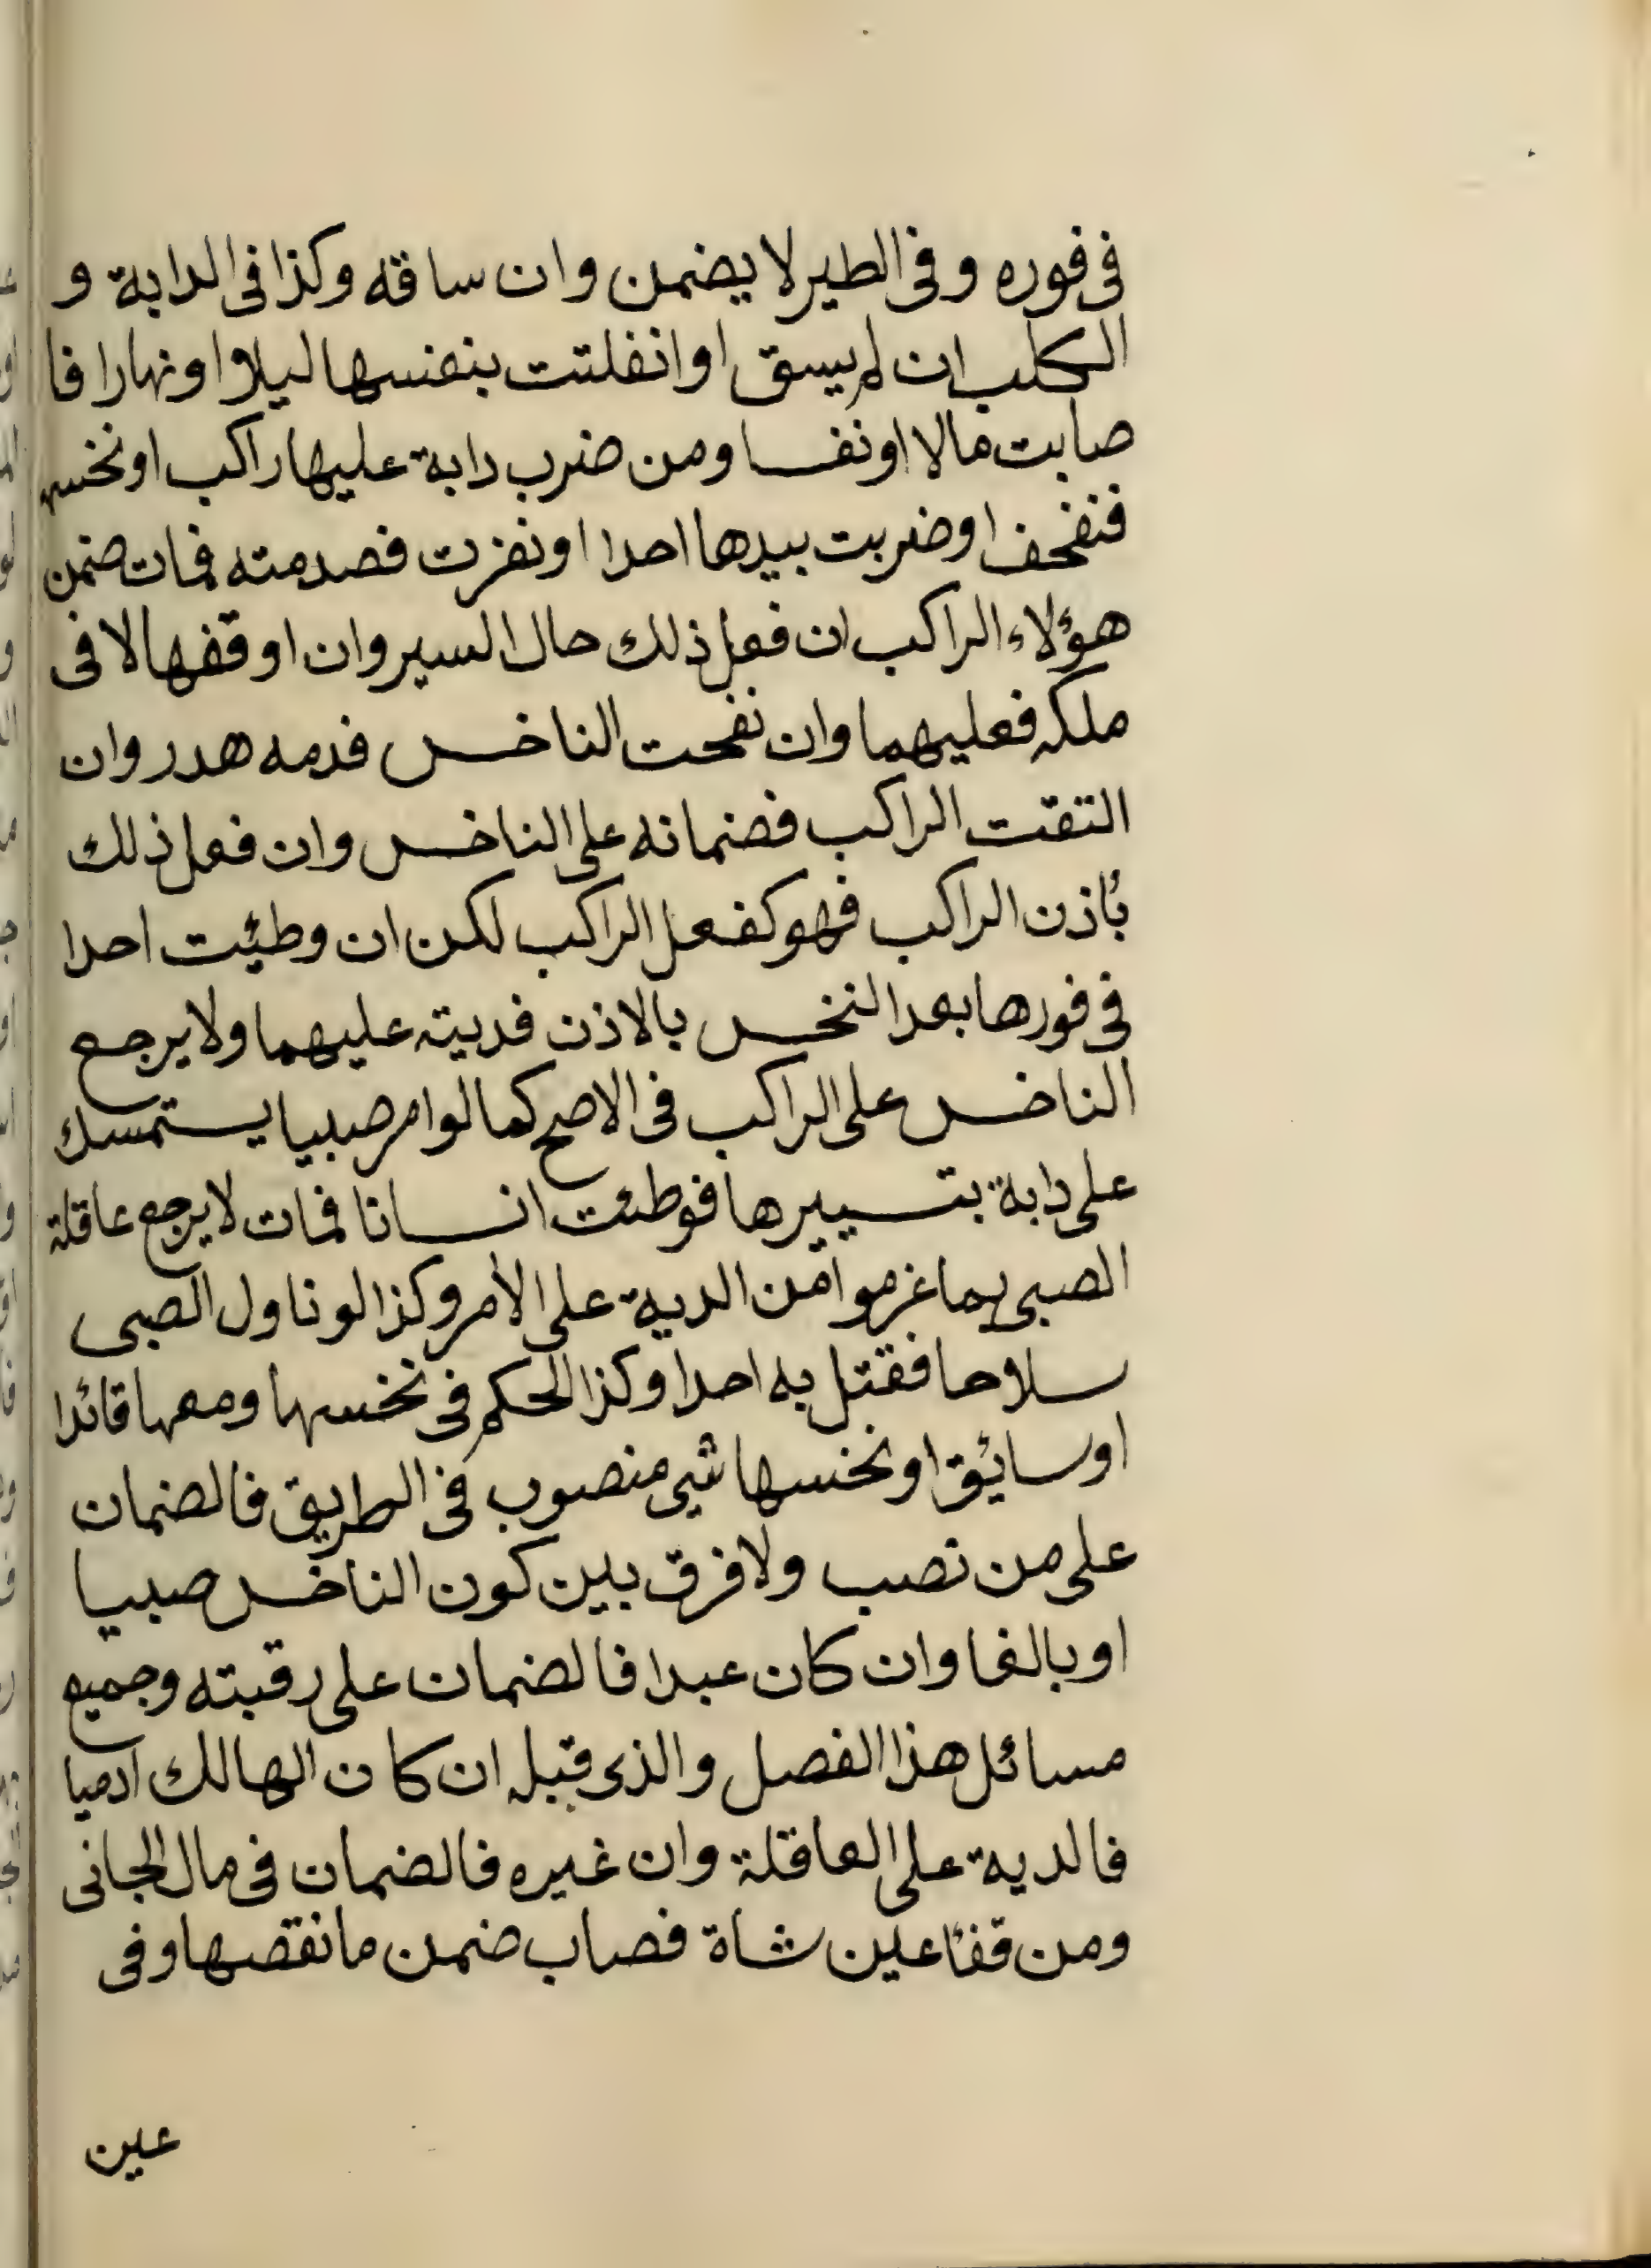 فى فوره وفى الطير لا يضمن وان ساقه وكذا فى الدابة و
الكلب ان لم يسق او انفلتت بنفسها ليلا او نهارا فا
صابت مالا او نفسا ومن ضرب دابة عليها راكب او نخسها
فنفحف او ضربت بيدها احدا او نفرت فصدمته فمات ضمن
هؤلاء الراكب ان فعل ذلك حال السير وان اوقفها لا فى
ملكه فعليهما وان نفحت الناخس فدمه هدر وان
التقت الراكب فضمانه على الناخس وان فعل ذلك
بأذن الراكب فهو كفعل الراكب لكن ان وطئت احدا
فى فورها بعد النخس بالاذن فديته عليهما ولا يرجع
الناخس على الراكب فى الاصح كما لو امر صبيا يستمسك
على دابة بتسييرها فوطئت انسانا فمات لا يرجع عاقلة
الصبى بما غرموا من الدية على الأمر وكذا لو ناول الصبى
سلاحا فقتل به احدا وكذا الحكم فى نخسها ومعها قائدا
او سائق او نخسها شئ منصوب فى الطريق فالضمان
على من نصب ولا فرق بين كون الناخس صبيا
او بالغا وان كان عبدا فالضمان على رقبته وجميع
مسائل هذا الفصل والذى قبله ان كان الهالك ادميا
فالدية على العاقلة وان غيره فالضمان فى مال الجانى
ومن قفئا عين شاة قصاب ضمن ما نقصها وفى
عين